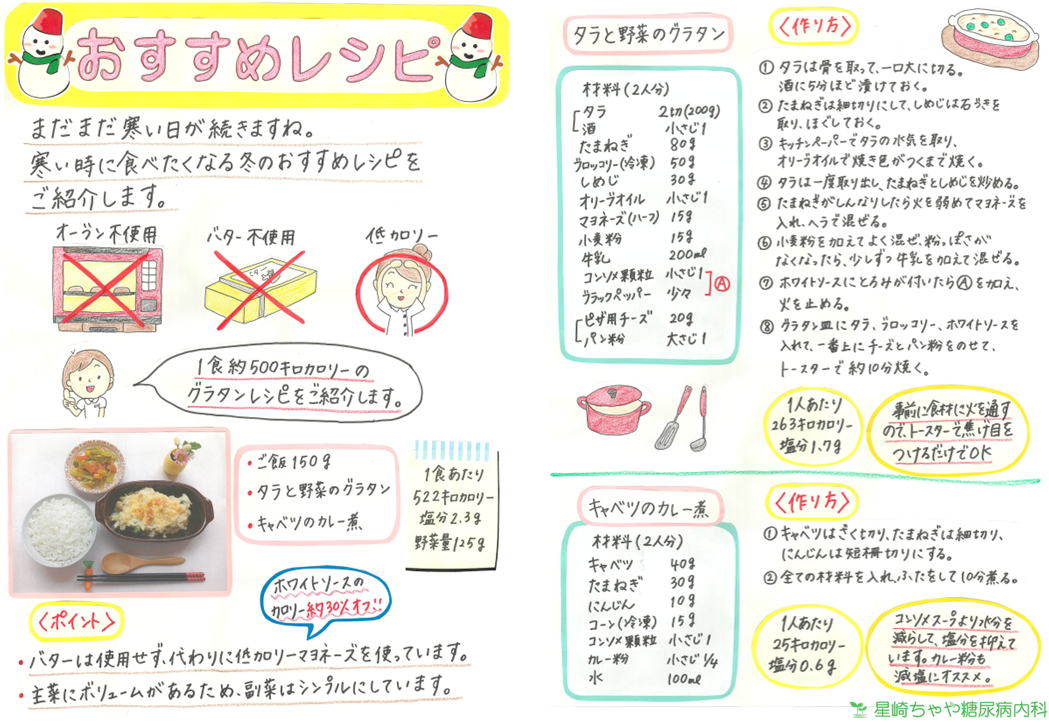 おすすめレシピ
まだまだ寒い日が続きますね。
寒い時に食べたくなる冬のおすすめレシピを
ご紹介します。
オーブン不使用
バター不使用
低カロリー
1食約500キロカロリーの
グラタンレシピをご紹介します。
・ご飯150g
・タラと野菜のグラタン
・キャベツのカレー煮
1食あたり
522キロカロリー
塩分2.3g
野菜量125g
ホワイトソースの
カロリー約30%オフ!!
〈ポイント〉
・バターは使用せず、代わりに低カロリーマヨネーズを使っています。
・主菜にボリュームがあるため、副菜はシンプルにしています。
タラと野菜のグラタン
材料(2人分)
タラ 2切(200g)
酒 小さじ1
たまねぎ 80g
ブロッコリー(冷凍) 50g
しめじ 30g
オリーブオイル 小さじ1
マヨネーズ(ハーフ) 15g
小麦粉 15g
牛乳 200ml
コンソメ顆粒 小さじ1
ブラックペッパー 少々
Ⓐ
ピザ用チーズ 20g
パン粉 大さじ1
〈作り方〉
① タラは骨を取って、一口大に切る。
酒に5分ほど漬けておく。
② たまねぎは細切りにして、しめじは石づきを
取り、ほぐしておく。
③ キッチンペーパーでタラの水気を取り、
オリーブオイルで焼き色がつくまで焼く。
④ タラは一度取り出し、たまねぎとしめじを炒める。
⑤ たまねぎがしんなりしたら火を弱めてマヨネーズを
入れ、ヘラで混ぜる。
⑥ 小麦粉を加えてよく混ぜ、粉っぽさが
なくなったら、少しずつ牛乳を加えて混ぜる。
⑦ ホワイトソースにとろみが付いたらⒶを加え、
火を止める。
⑧ グラタン皿にタラ、ブロッコリー、ホワイトソースを
入れて、一番上にチーズとパン粉をのせて、
トースターで約10分焼く。
1人あたり
263キロカロリー
塩分1.7g
事前に食材に火を通す
ので、トースターで焦げ目を
つけるだけでOK
キャベツのカレー煮
材料(2人分)
キャベツ 40g
たまねぎ 30g
にんじん 10g
コーン(冷凍) 15g
コンソメ顆粒 小さじ1
カレー粉 小さじ1/4
水 100ml
〈作り方〉
① キャベツはざく切り、たまねぎは細切り、
にんじんは短冊切りにする。
② 全ての材料を入れ、ふたをして10分煮る。
1人あたり
25キロカロリー
塩分0.6g
コンソメスープより水分を
減らして、塩分を抑えて
います。カレー粉も
減塩にオススメ。
星崎ちゃや糖尿病内科